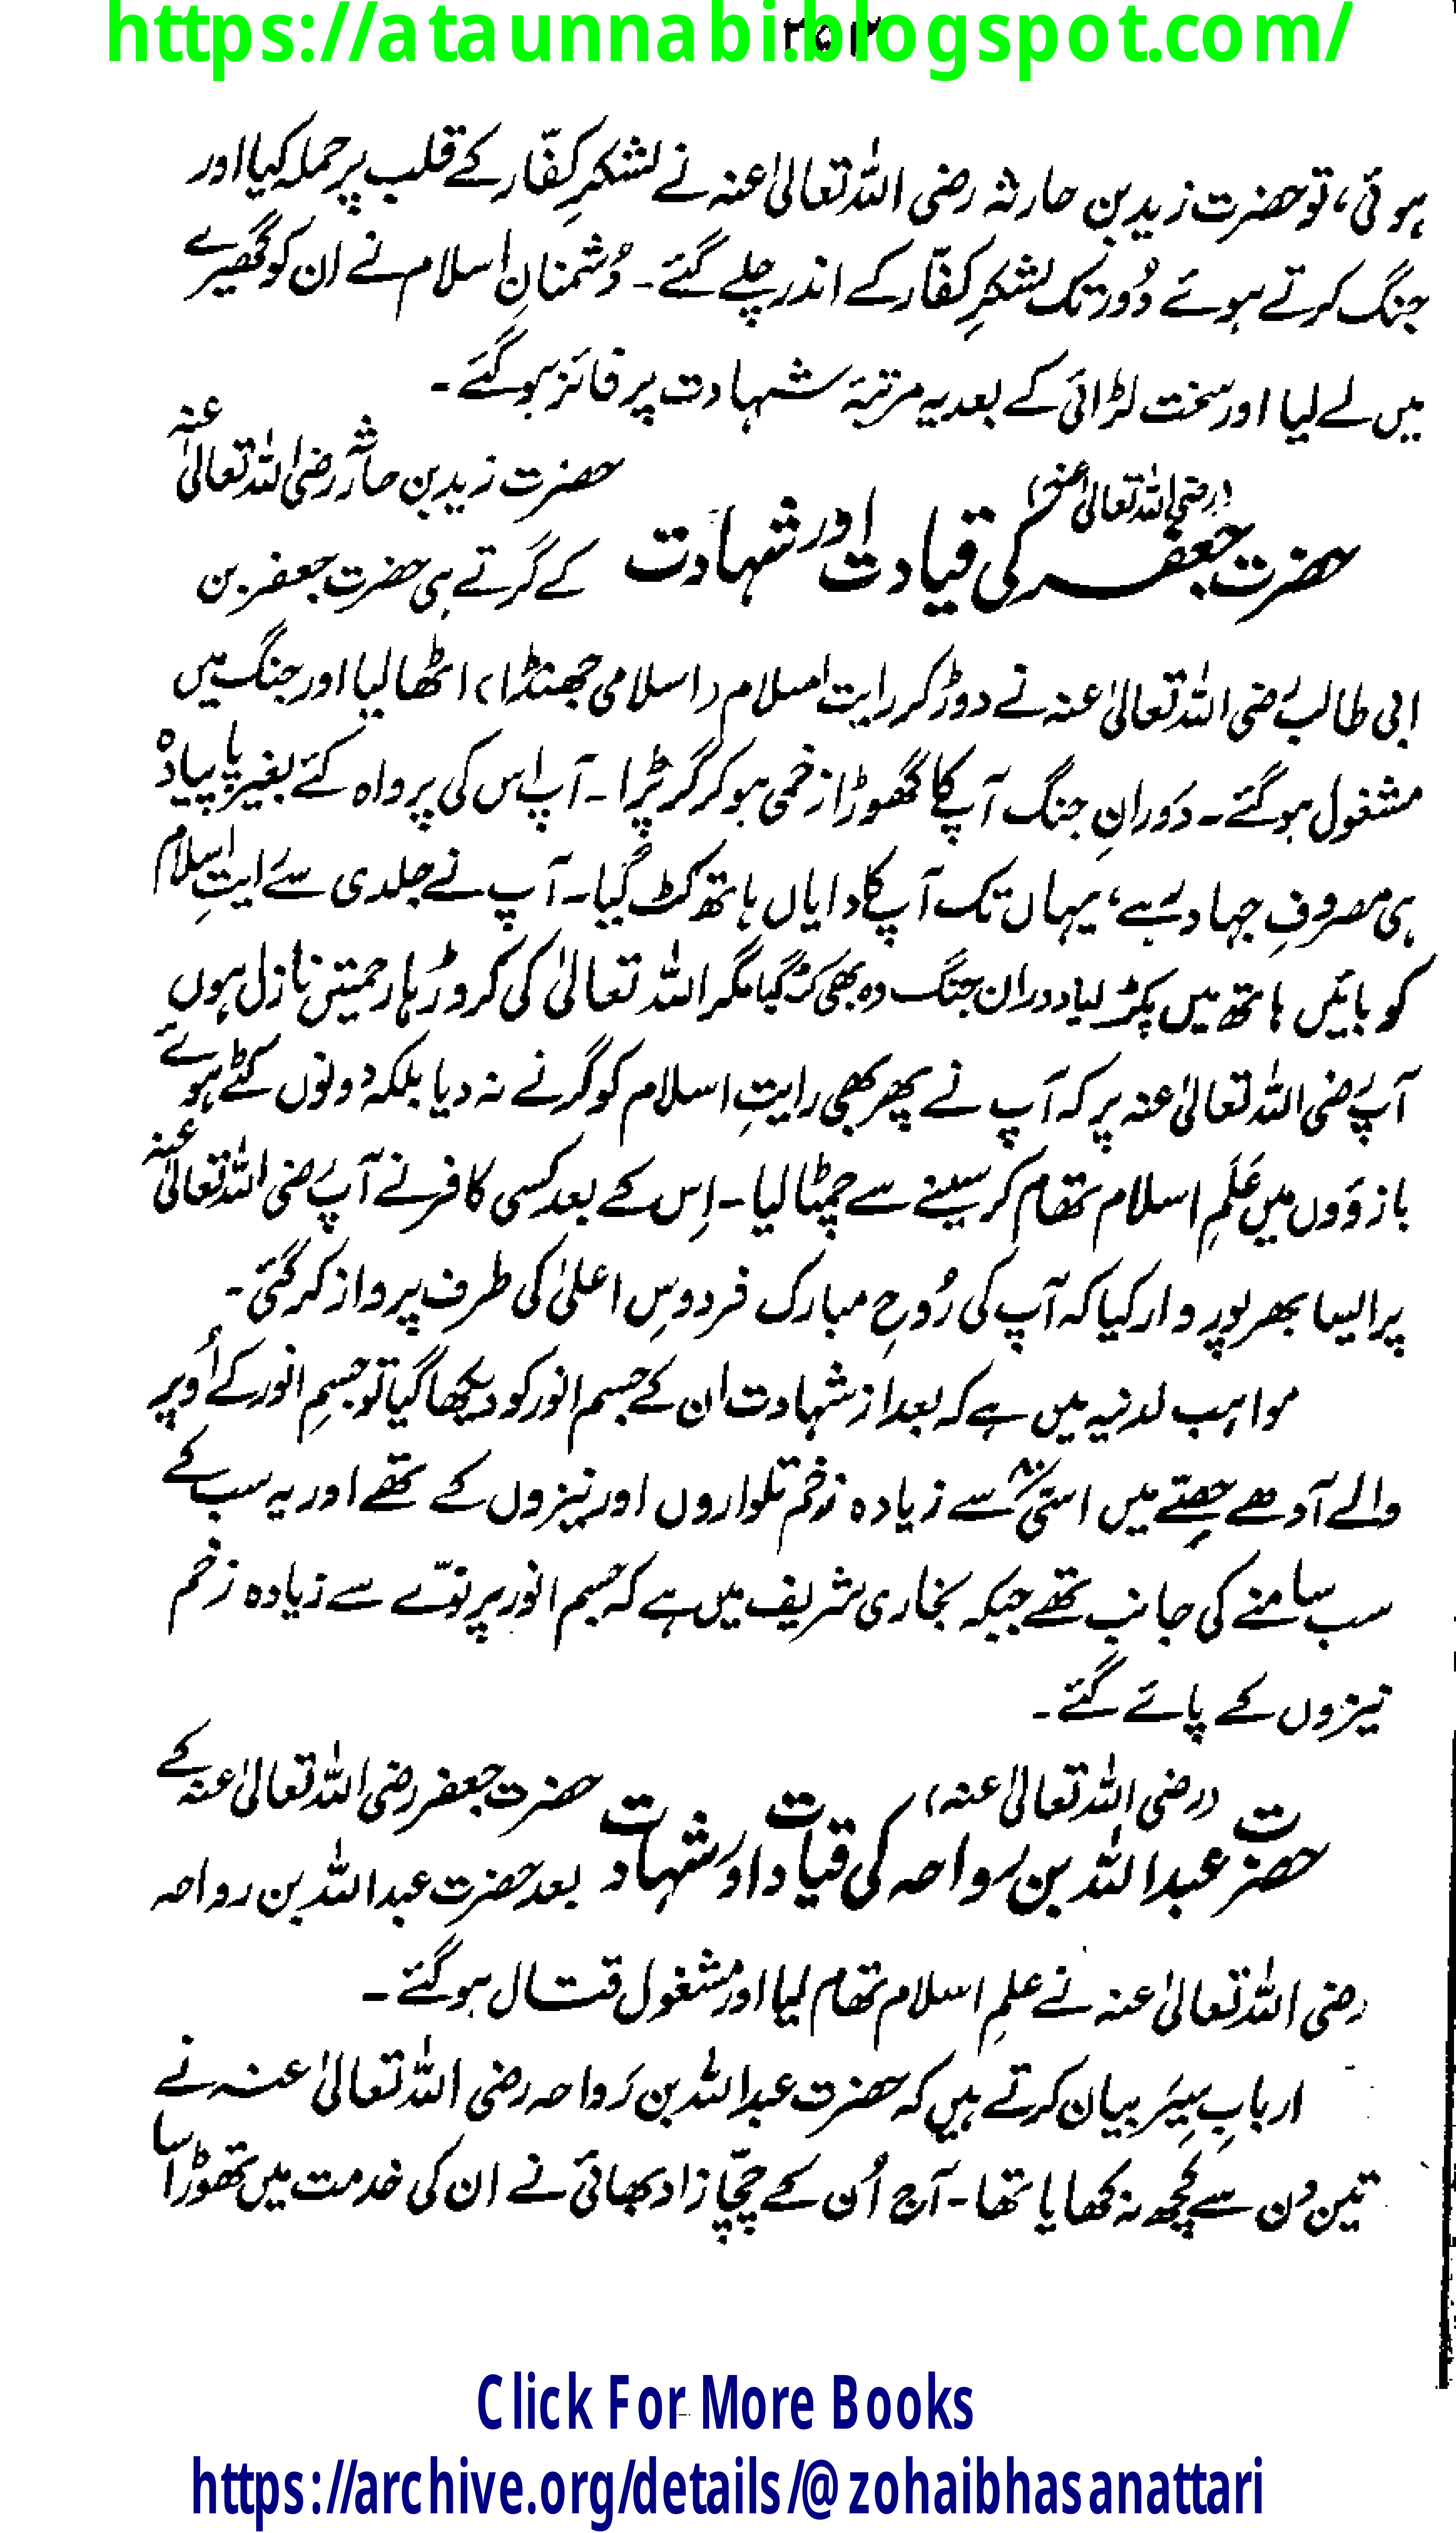 https://ataunnabi.blogspot.com/
ہوئی، تو حضرت زید بن حارثہ رضی اللہ تعالیٰ عنہ نے لشکرِ کفّار کے قلب پر حملہ کیا اور
جنگ کرتے ہوئے دُور تک لشکرِ کفّار کے اندر چلے گئے۔ دُشمنانِ اسلام نے ان کو گھیرے
میں لے لیا اور سخت لڑائی کے بعد یہ مرتبۂ شہادت پر فائز ہو گئے۔
حضرت جعفر (رضی اللہ تعالیٰ عنہ) کی قیادت اور شہادت
حضرت زید بن حارثہ رضی اللہ تعالیٰ عنہ
کے گرتے ہی حضرت جعفر بن
ابی طالب رضی اللہ تعالیٰ عنہ نے دوڑ کر رایت اسلام (اسلامی جھنڈا) اٹھا لیا اور جنگ میں
مشغول ہو گئے۔ دَورانِ جنگ آپ کا گھوڑا زخمی ہو کر گر پڑا۔ آپ اس کی پرواہ کئے بغیر پا پیادہ
ہی مصروفِ جہاد رہے، یہاں تک آپ کا دایاں ہاتھ کٹ گیا۔ آپ نے جلدی سے رایتِ اسلام
کو بائیں ہاتھ میں پکڑ لیا دوران جنگ وہ بھی کٹ گیا مگر اللہ تعالیٰ کی کروڑہا رحمتیں نازل ہوں
آپ رضی اللہ تعالیٰ عنہ پر کہ آپ نے پھر بھی رایتِ اسلام کو گرنے نہ دیا بلکہ دونوں کٹے ہوئے
بازوَوں میں عَلَمِ اسلام تھام کر سینے سے چمٹا لیا۔ اِس کے بعد کسی کافر نے آپ رضی اللہ تعالیٰ عنہ
پر ایسا بھرپور وار کیا کہ آپ کی رُوحِ مبارک فردوسِ اعلیٰ کی طرف پرواز کر گئی۔
مواہب لدنیہ میں ہے کہ بعد از شہادت ان کے جسم انور کو دیکھا گیا تو جسمِ انور کے اُوپر
والے آدھے حِصّے میں اسّی ۸۰ سے زیادہ زخم تلواروں اور نیزوں کے تھے اور یہ سب کے
سب سامنے کی جانب تھے جبکہ بخاری شریف میں ہے کہ جسم انور پر نوّے سے زیادہ زخم
نیزوں کے پائے گئے۔
حضرت عبداللہ بن رواحہ (رضی اللہ تعالیٰ عنہ) کی قیادت اور شہادت
حضرت جعفر رضی اللہ تعالیٰ عنہ کے
بعد حضرت عبداللہ بن رواحہ
رضی اللہ تعالیٰ عنہ نے علمِ اسلام تھام لیا اور مشغول قتال ہو گئے۔
اربابِ سِیَر بیان کرتے ہیں کہ حضرت عبداللہ بن رَواحہ رضی اللہ تعالیٰ عنہ نے
تین دن سے کچھ نہ کھایا تھا۔ آج اُن کے چچّا زاد بھائی نے ان کی خدمت میں تھوڑا سا
Click For More Books
https://archive.org/details/@zohaibhasanattari